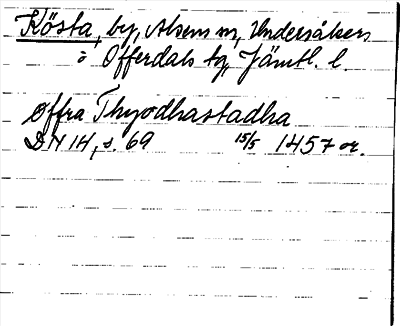 Kösta, by, Alsens sn, Undersåkers
o Offerdals tg, Jämtl. l.
Øffra Thyodhastadha
DN 14, s. 69 15/5 1457 or.